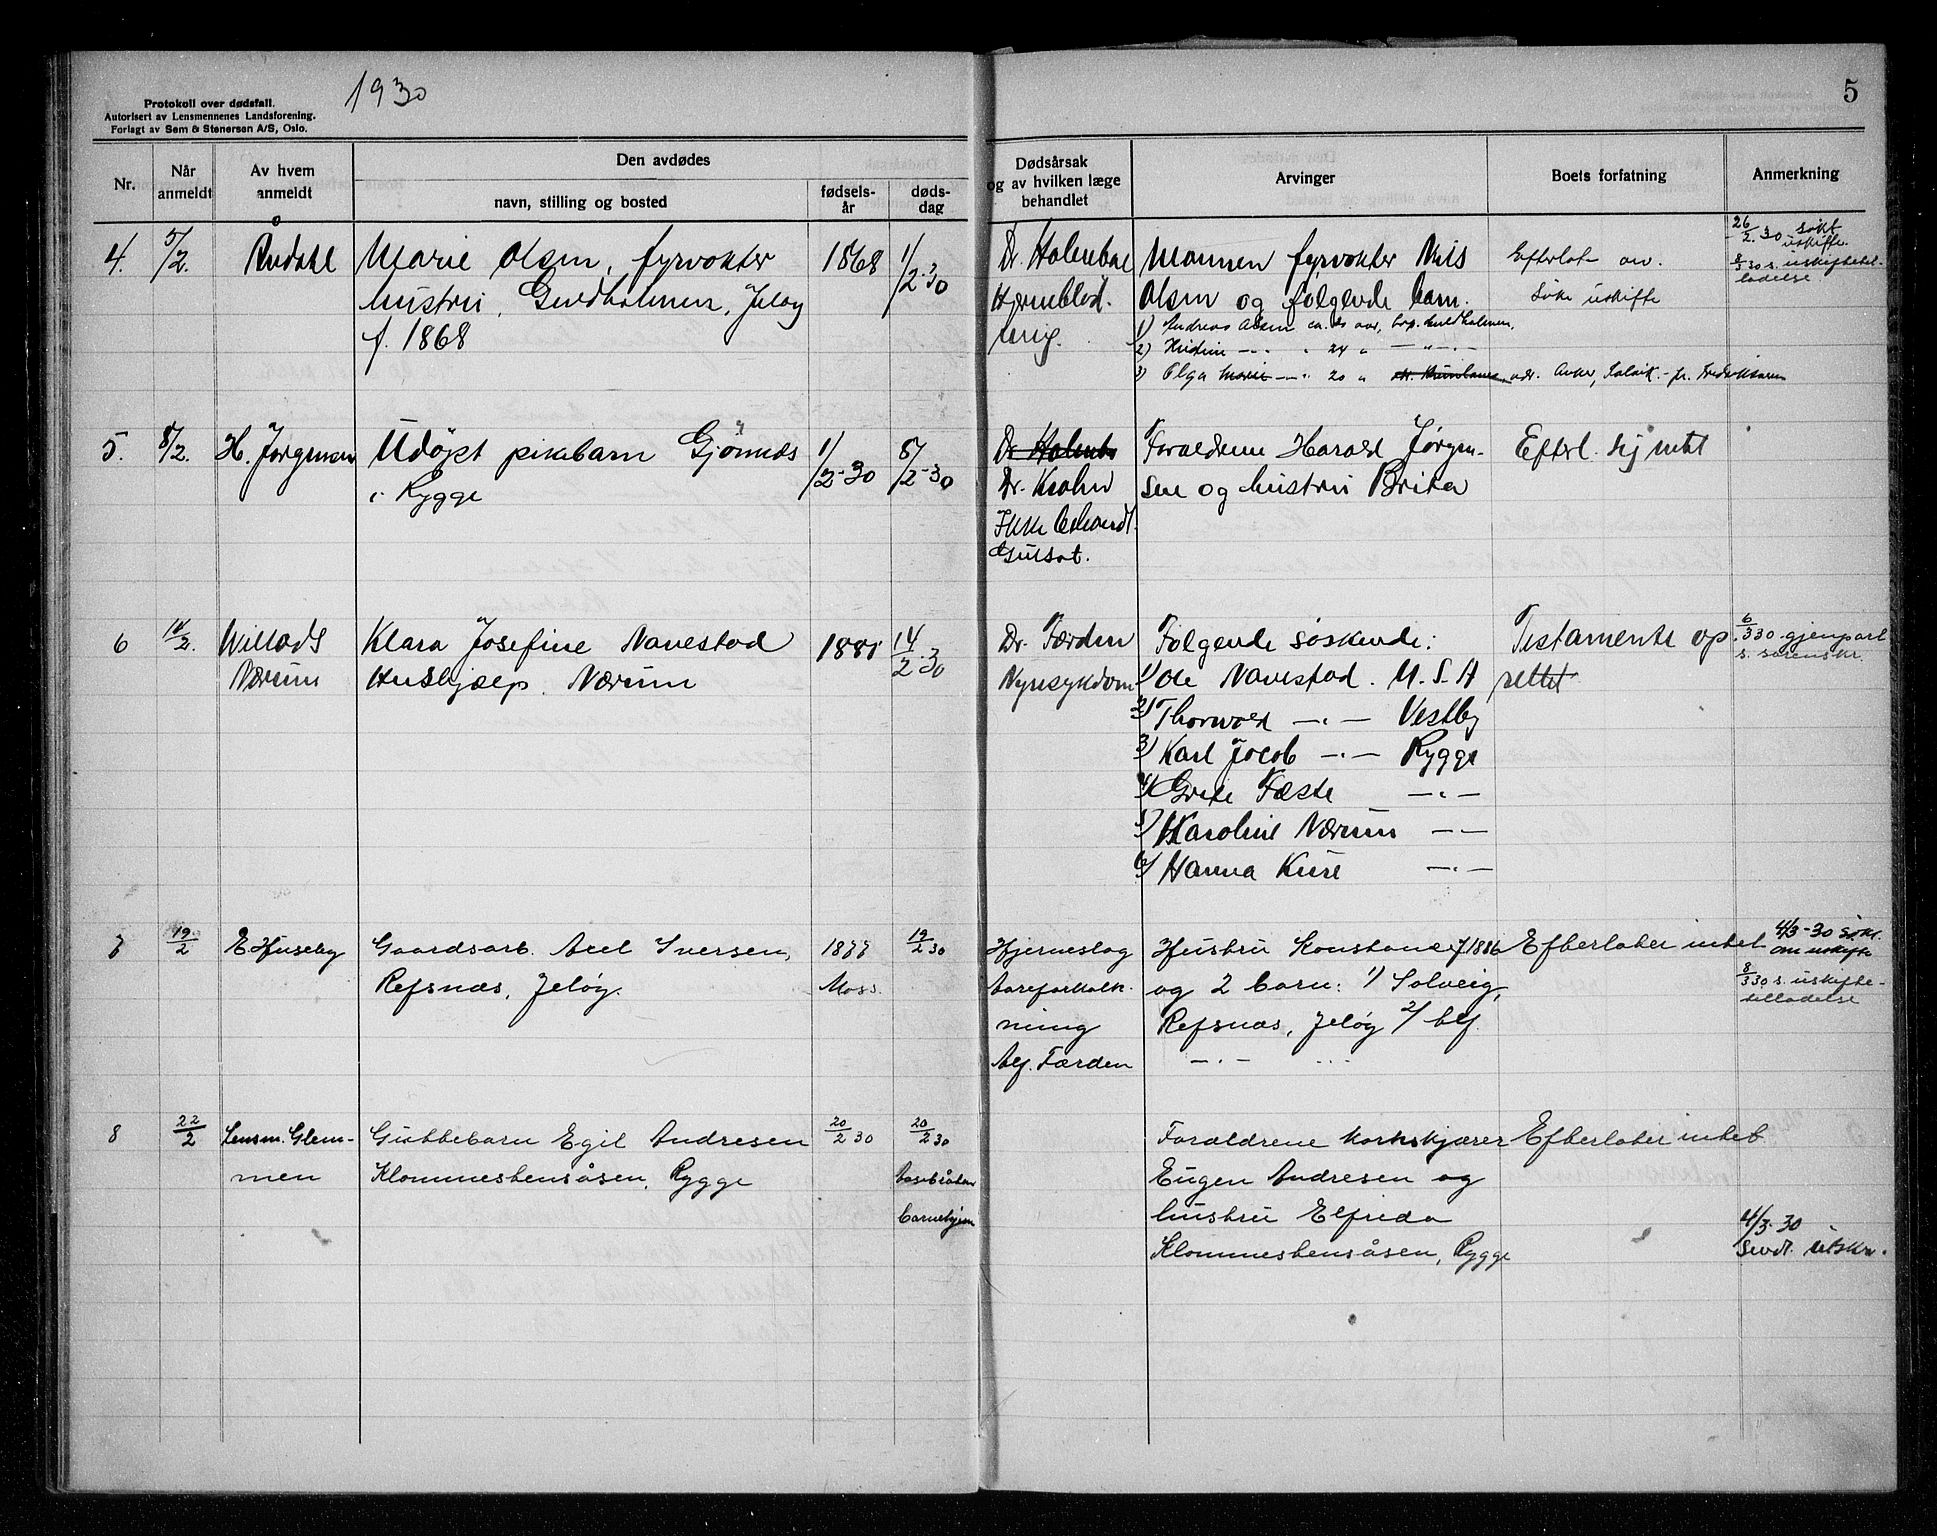 1930
5
Protokoll over dødsfall.
Autorisert av Lensmennenes Landsforening.
Forlagt av Sem & Stenersen A/S, Oslo.
Nr.
Når anmeldt
Av hvem anmeldt
Den avdødes
navn, stilling og bosted
fødsels-
år
døds-
dag
Dødsårsak
og av hvilken læge
behandlet
Arvinger
Boets forfatning
Anmerkning
4. 5/2.
Marie Olsen, fyrvokter
hustru, Guldholmen, Jeløy
f. 1868
1868
1/2-30
Dr. Holmboe
Hjerneblød.
Mannen fyrvokter Nils
Olsen og følgende barn.
1) Andreas Olsen ca. aar, Guldholmen.
2) 24 "
3) Olga Marie 20 " adr. Anker,
Efterlot
Søke uskifte
26/2.30 søkt
uskifte.
8/3 30 s. uskiftetil-
ladelse
5. 8/2. H. Jørgensen
Udøpt pikebarn Gjønnes
i Rygge
1/2-30
8/2-30
Dr. Holmbo
Dr. Krohn
Ikke behandl.
Gulsot.
Foraldrene Harald Jørgen-
sen og hustru Brita
Efterl. sig intet
6 14/2. Willads
Nærum
Klara Josefine Navestad
Hushjælp. Nærum
1881
14/2.30
Dr. Færden
Nyresykdom
Følgende søskende:
1) Ole Navestad. U.S.A
2) Thorvald -"- Vestby
3) Karl Jacob -"- Rygge
4) Grete Fæste -"-
5) Karoline Nærum -"-
6) Hanna Kure -"-
Testamente op
rettet
6/3 30. gjenpart
s. sorenskr.
7 19/2 E. Huseby
Gaardsarb. Axel Iversen,
Refsnæs, Jeløy.
1877
Moss
19/2 30
Hjerneslag
Aareforkalk-
ning
Alf. Færden
Hustru Konstance f 1886
og 2 barn: 1) Solveig,
Refsnæs, Jeløy 2/
-"- ...
Efterlater intet
4/3-30 søkt
om uskifte
8/3 30 s. uskifte-
tilladelse
8 22/2 Lensm. Glem-
men
Guttebarn Egil Andresen
Klommestensåsen, Rygge
20/2 30
20/2 30
barnehjem
Foraldrene korkskjærer
Eugen Andresen og
hustru Elfrida
Klommestensåsen, Rygge
Efterlater intet
4/3-30
Sendt utskr.